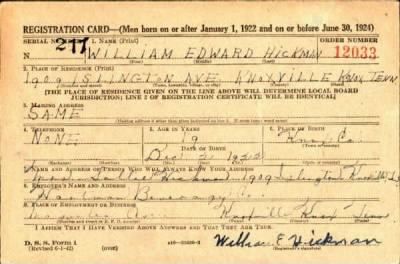 REGISTRATION CARD—(Men born on or after January 1, 1922 and on or before June 30, 1924)
SERIAL NUMBER 1. NAME (Print) ORDER NUMBER
N 217 WILLIAM EDWARD HICKMAN 12033
(First) (Middle) (Last)
2. PLACE OF RESIDENCE (Print)
1909 ISLINGTON AVE. KNOXVILLE KNOX TENN
[THE PLACE OF RESIDENCE GIVEN ON THE LINE ABOVE WILL DETERMINE LOCAL BOARD
JURISDICTION; LINE 2 OF REGISTRATION CERTIFICATE WILL BE IDENTICAL]
3. MAILING ADDRESS
SAME
4. TELEPHONE 5. AGE IN YEARS 6. PLACE OF BIRTH
NONE 19 Knox Co.
DATE OF BIRTH
Dec.
7. NAME AND ADDRESS OF PERSON WHO WILL ALWAYS KNOW YOUR ADDRESS
Mrs. Hickman 1909 Islington
8. EMPLOYER'S NAME AND ADDRESS
9. PLACE OF EMPLOYMENT OR BUSINESS
Knoxville Knox Tenn
I AFFIRM THAT I HAVE VERIFIED ABOVE ANSWERS AND THAT THEY ARE TRUE.
D. S. S. Form 1
(Revised 6-1-42) (over)
William E. Hickman